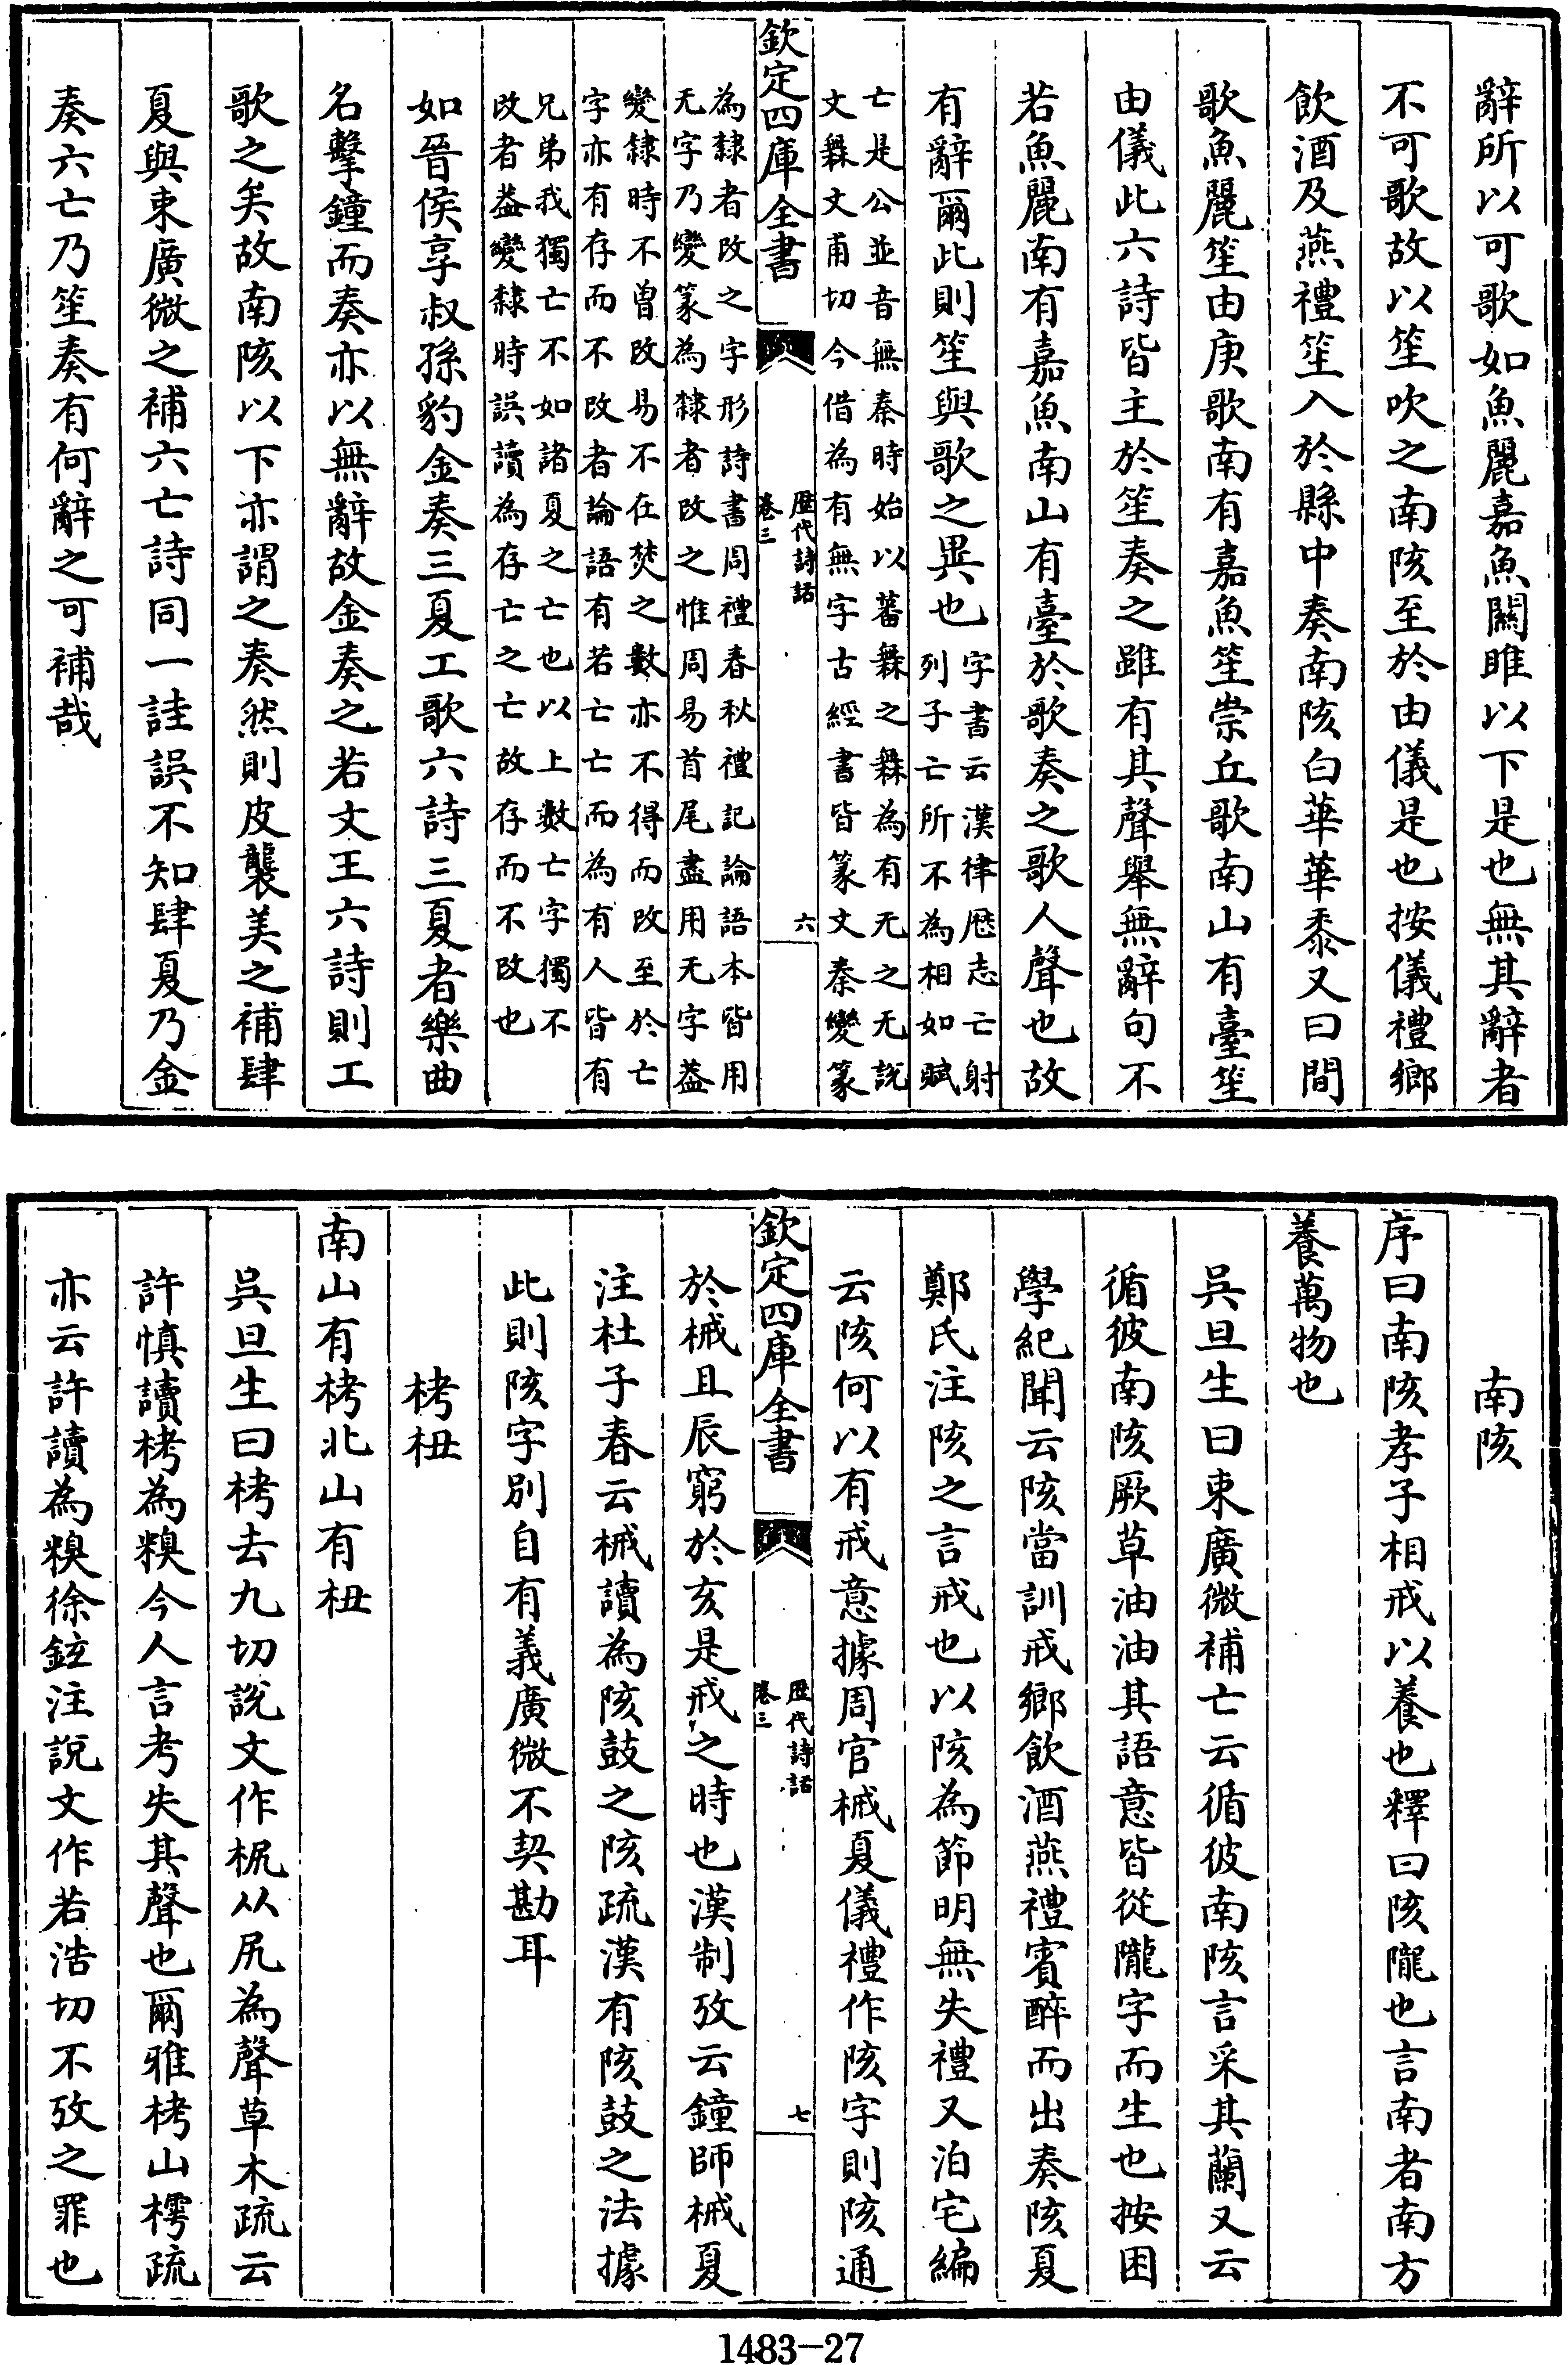 辭所以可歌如魚麗嘉魚闗雎以下是也無其辭者
不可歌故以笙吹之南陔至於由儀是也按儀禮鄉
飲酒及燕禮笙入於縣中奏南陔白華華黍又曰間
歌魚麗笙由庚歌南有嘉魚笙崇丘歌南山有臺笙
由儀此六詩皆主於笙奏之雖有其聲舉無辭句不
若魚麗南有嘉魚南山有臺於歌奏之歌人聲也故
有辭爾此則笙與歌之異也
字書云漢律厯志亡射
列子亡所不為相如賦
亡是公並音無秦時始以蕃橆之橆為有无之无説
文橆文甫切今借為有無字古經書皆篆文秦變篆
欽定四庫全書
歴代詩話
卷三
六
為隸者改之字形詩書周禮春秋禮記論語本皆用
无字乃變篆為隸者改之惟周易首尾盡用无字葢
變隸時不曾改易不在焚之數亦不得而改至於亡
字亦有存而不改者論語有若亡亡而為有人皆有
兄弟我獨亡不如諸夏之亡也以上數亡字獨不
改者葢變隸時誤讀為存亡之亡故存而不改也
如晉侯享叔孫豹金奏三夏工歌六詩三夏者樂曲
名擊鐘而奏亦以無辭故金奏之若文王六詩則工
歌之矣故南陔以下亦謂之奏然則皮襲美之補肆
夏與束廣微之補六亡詩同一詿誤不知肆夏乃金
奏六亡乃笙奏有何辭之可補哉
南陔
序曰南陔孝子相戒以養也釋曰陔隴也言南者南方
養萬物也
吳旦生曰束廣微補亡云循彼南陔言采其蘭又云
循彼南陔厥草油油其語意皆從隴字而生也按困
學紀聞云陔當訓戒鄉飲酒燕禮賓醉而出奏陔夏
鄭氏注陔之言戒也以陔為節明無失禮又泊宅編
云陔何以有戒意據周官祴夏儀禮作陔字則陔通
欽定四庫全書
歴代詩話
卷三
七
於祴且辰窮於亥是戒之時也漢制攷云鐘師祴夏
注杜子春云祴讀為陔鼓之陔疏漢有陔鼓之法據
此則陔字別自有義廣微不契勘耳
栲杻
南山有栲北山有杻
吳旦生曰栲去九切説文作㧪从尻為聲草木疏云
許慎讀栲為糗今人言考失其聲也爾雅栲山樗疏
亦云許讀為糗徐鉉注説文作苦浩切不攷之罪也
1483—27